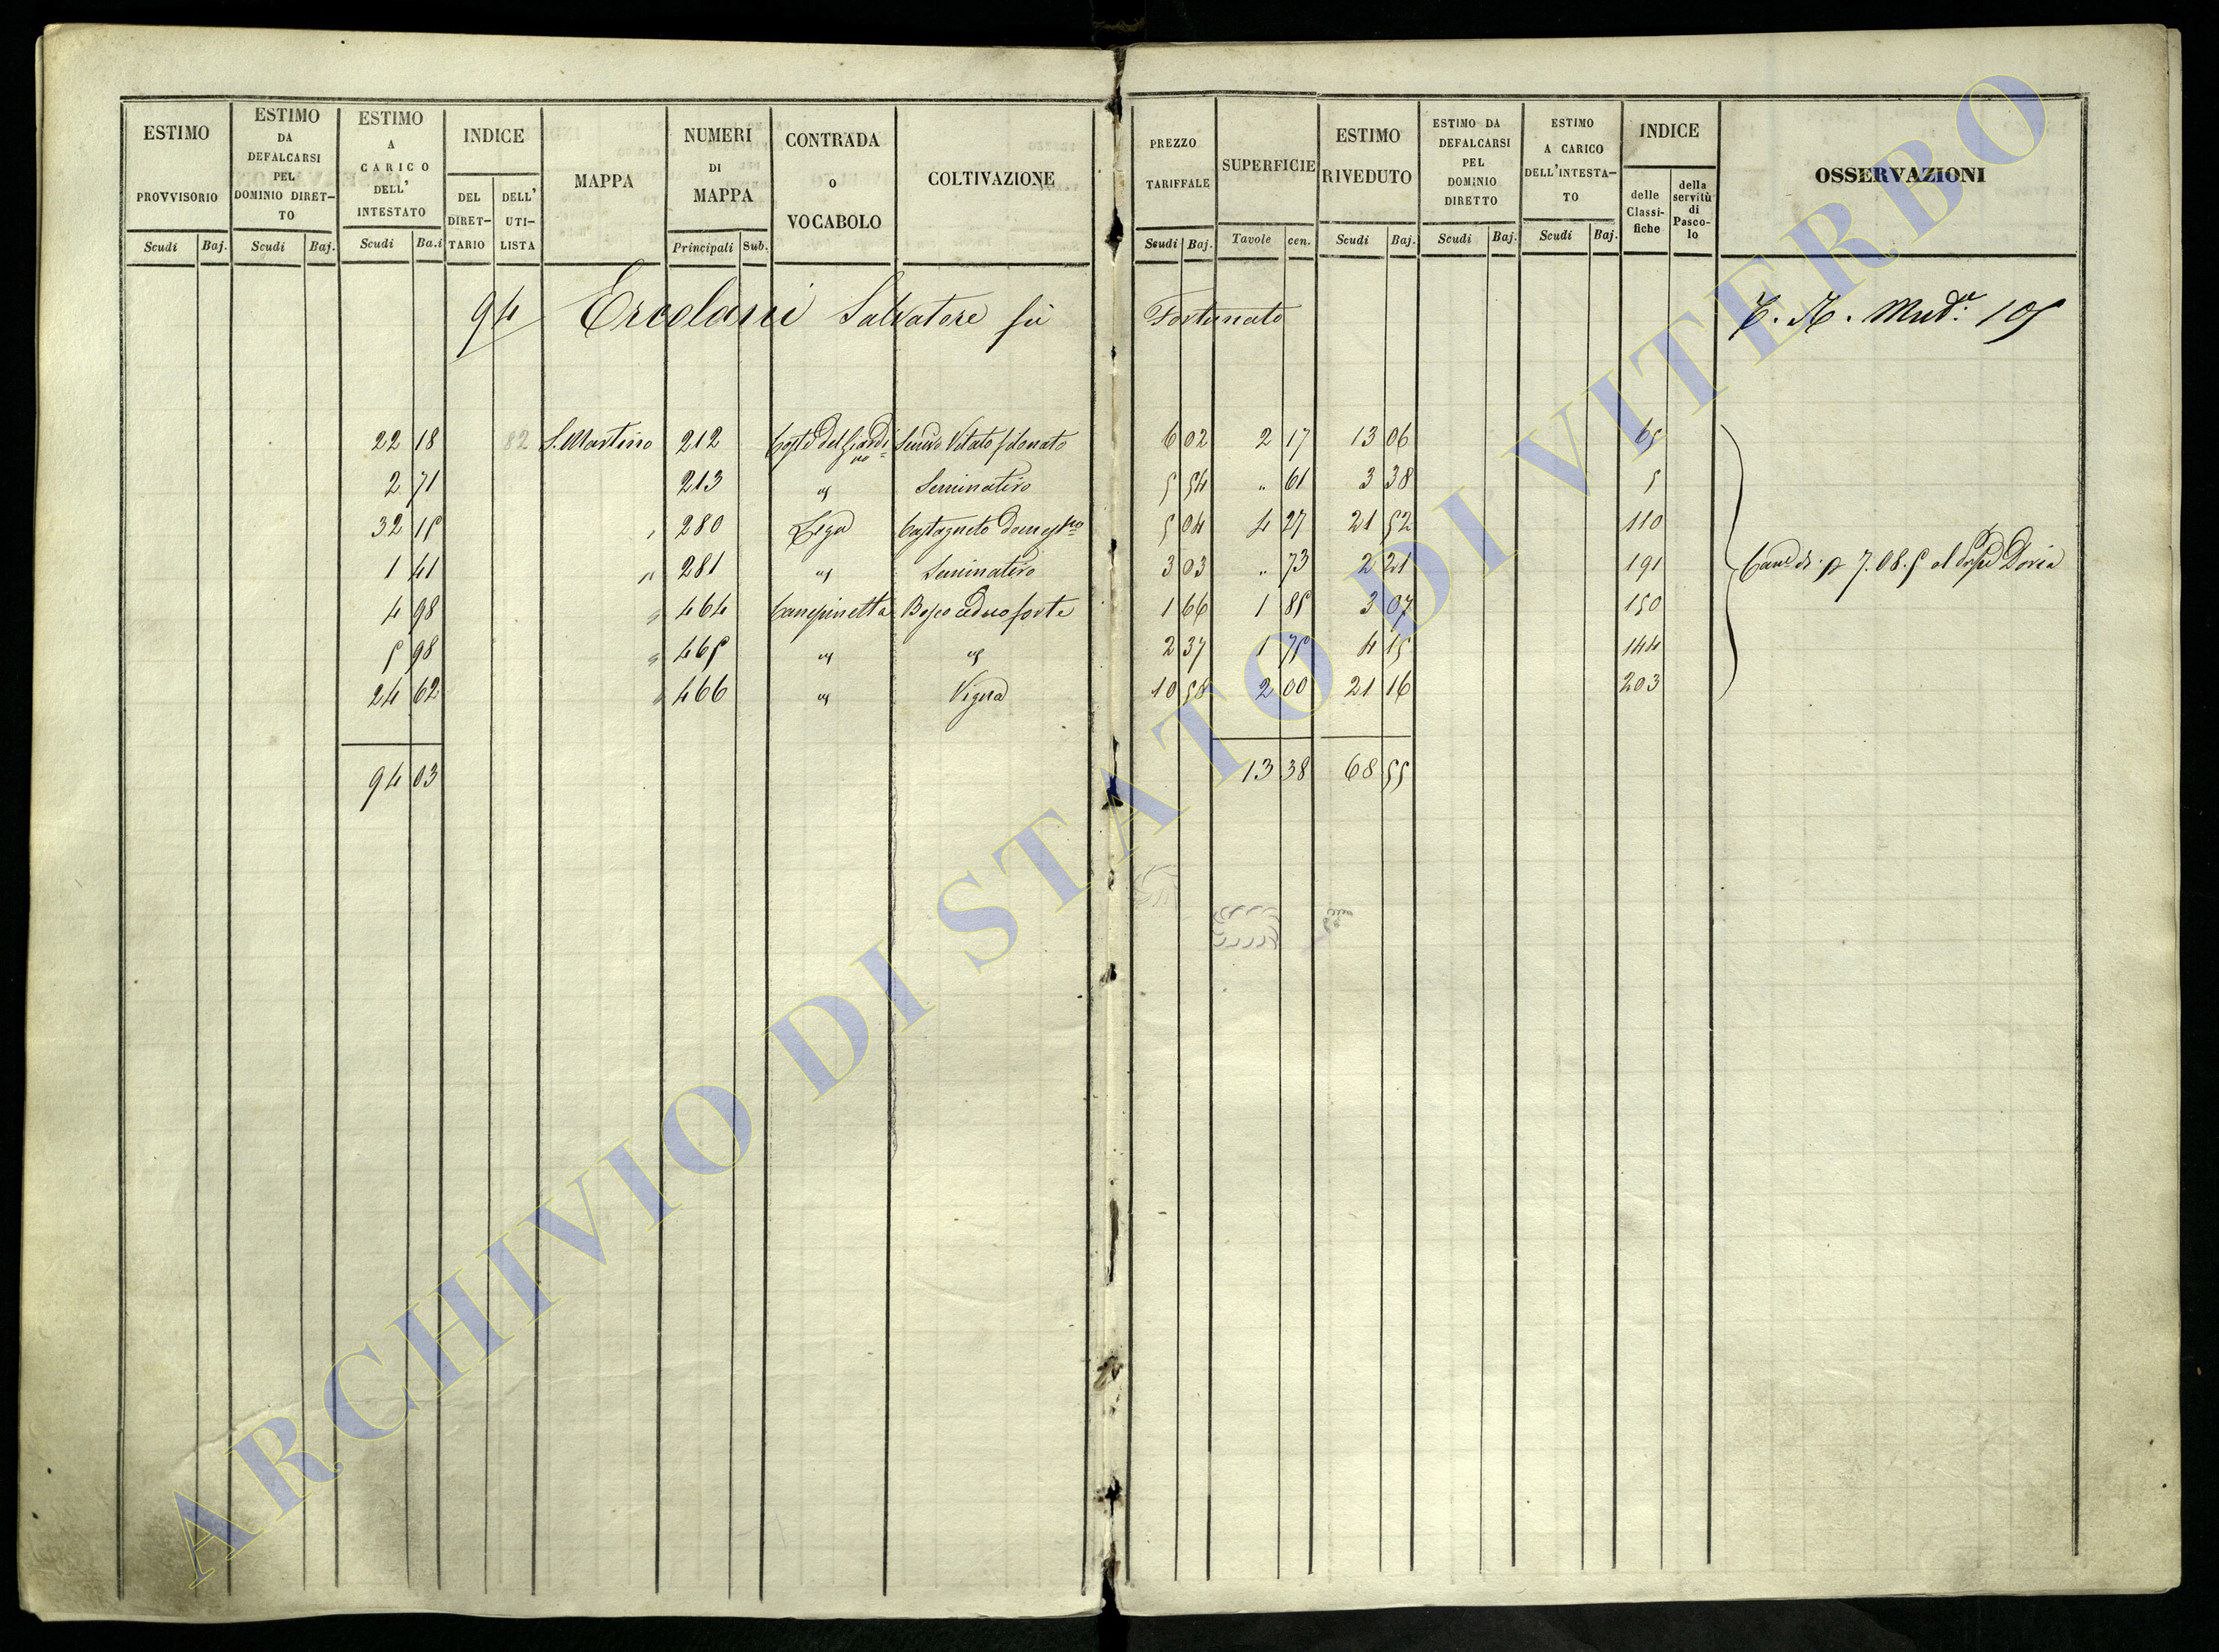 ESTIMO PROVVISORIO Scudi Baj.
ESTIMO DA DEFALCARSI PEL DOMINIO DIRET-TO Scudi Baj.
ESTIMO A CARICO DELL' INTESTATO Scudi Ba.i
INDICE DEL DIRET-TARIO DELL' UTI-LISTA
MAPPA
NUMERI DI MAPPA Principali Sub.
CONTRADA O VOCABOLO
COLTIVAZIONE
PREZZO TARIFFALE Scudi Baj.
SUPERFICIE Tavole cen.
ESTIMO RIVEDUTO Scudi Baj.
ESTIMO DA DEFALCARSI PEL DOMINIO DIRETTO Scudi Baj.
ESTIMO A CARICO DELL'INTESTA-TO Scudi Baj.
INDICE delle Classi-fiche della servitù di Pasco-lo
OSSERVAZIONI
94 Ercolani Salvatore fu Fortunato 105
22 18 82 S. Martino 212 Coste del Giardino Semivo Vitato 6 02 2 17 13 06 65
2 71 213 Seminativo 5 54 " 61 3 38 5
32 15 " 280 Castagneto domest.co 5 04 4 27 21 52 110
1 41 " 281 " Seminativo 3 03 " 73 2 21 191
4 98 " 464 Campinetta Bosco ceduo forte 1 66 1 85 3 07 150
5 98 " 465 " " 2 37 1 75 4 15 144
24 62 " 466 " Vigna 10 58 2 00 21 16 203
7.08.5 al Doria
94 03 13 38 68 55
ARCHIVIO DI STATO DI VITERBO